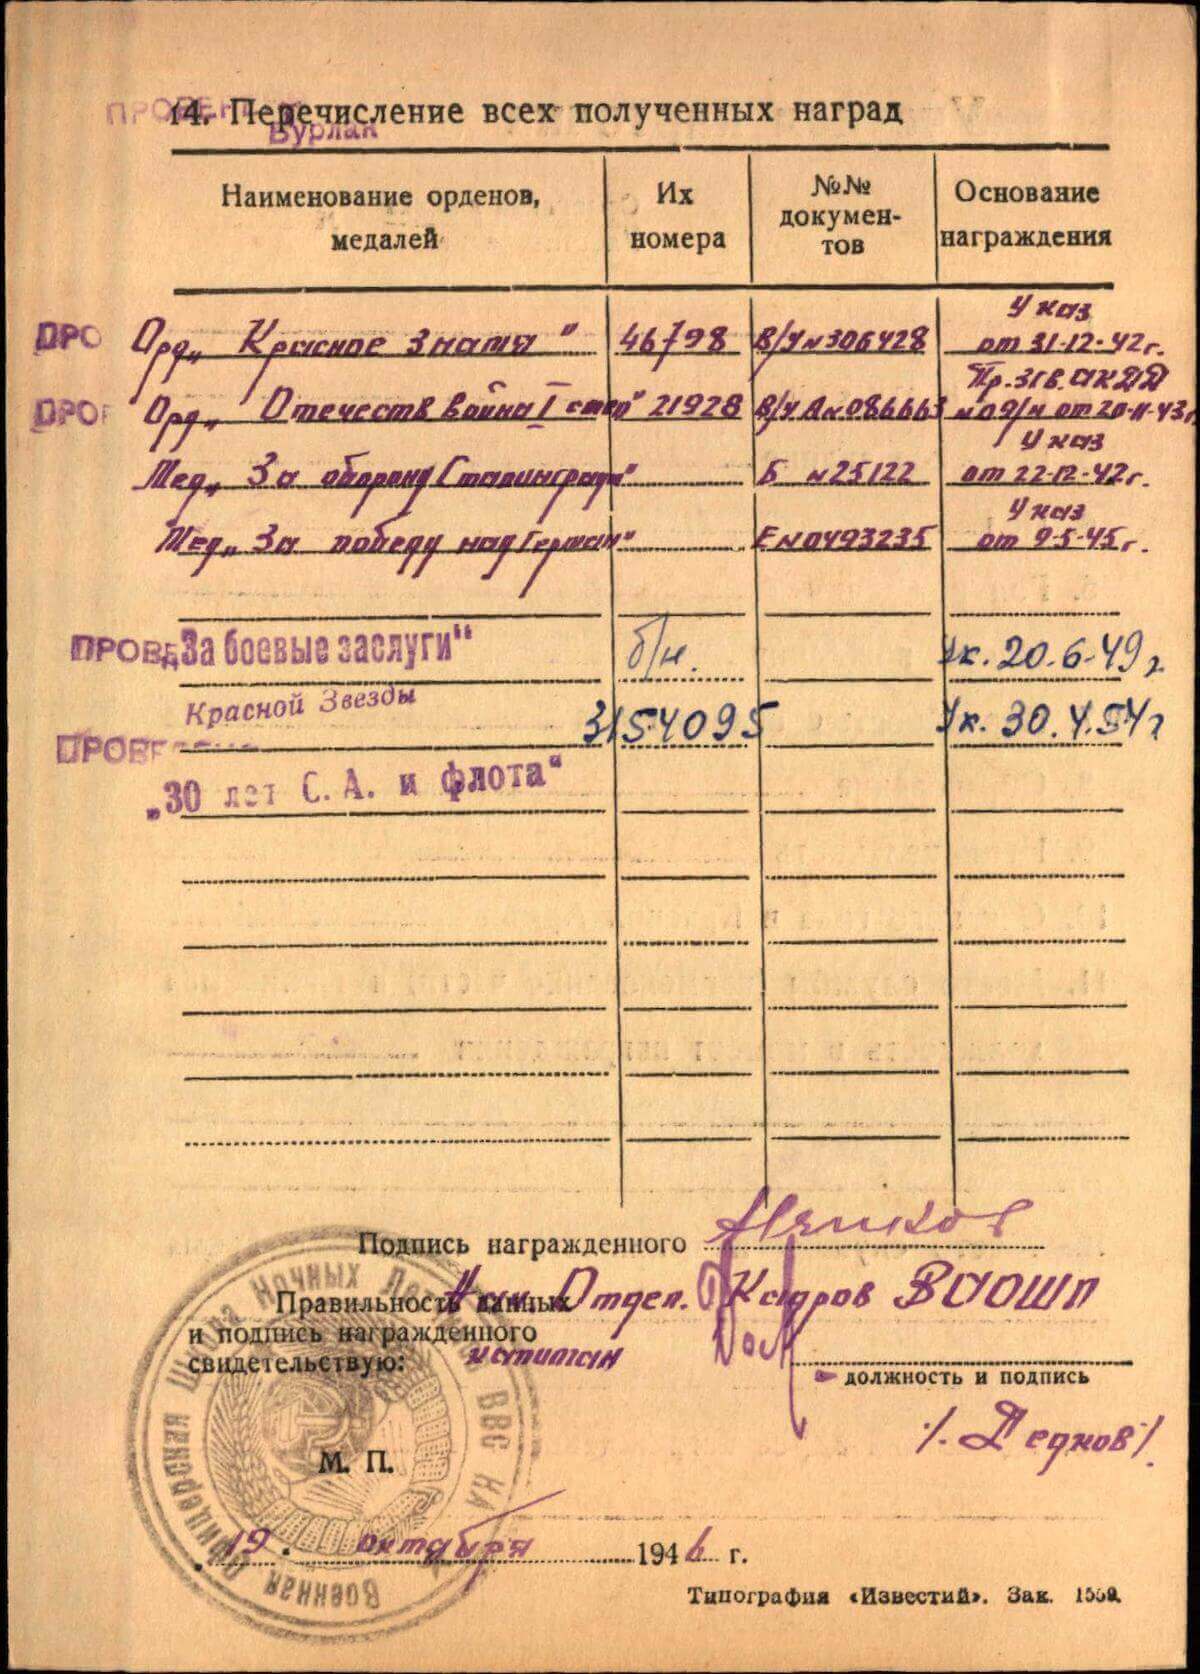 ПРОВЕРЕНО
Бурлак
14. Перечисление всех полученных наград
Наименование орденов, медалей
Их номера
№№ документов
Основание награждения
ПРО Орд. „Красное Знамя" 46798 В/У №306428 Указ от 31-12-42г.
ПРОВ Орд. „Отечеств война I степ" 21928 В/У А №086663 Пр. 3гв. АК ДД №09/н от 20-11-43г.
Мед. „За оборону Сталинграда" Б №25122 Указ от 22-12-42г.
Мед. „За победу над Герман" Е №0493235 Указ от 9-5-45г.
ПРОВЕ „За боевые заслуги" б/н. Ук. 20.6.49 г
Красной Звезды 3154095 Ук. 30.4.54 г
ПРОВЕРЕНО
„30 лет С. А. и флота"
Подпись награжденного
Правильность данных Нач. Отдел. Кадров ВАОШП
и подпись награжденного
свидетельствую: капитан
должность и подпись
/. Дедков /.
М. П.
Военная Офицерская Школа Ночных ВВС КА
19 октября 1946 г.
Типография «Известий». Зак. 1559.